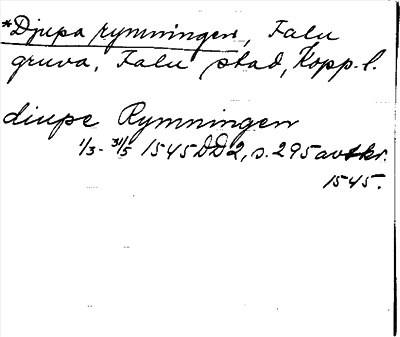 *Djupa rymningen, Falu
gruva, Falu stad, Kopp. l.
diupe Rymningen
1/3 - 31/5 1545 DD2, s. 295 avskr.
1545.